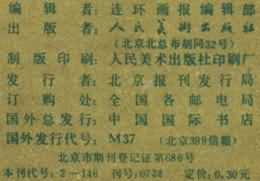 编辑者：连环画报编辑部
出版者：人民美术出版社
（北京北总布胡同32号）
制版印刷：人民美术出版社印刷厂
发行者：北京报刊发行局
订购处：全国各邮电局
国外总发行：中国国际书店
国外发行代号：M37 （北京399信箱）
北京市期刊登记证第686号
本刊代号：2—146 刊号：0728 定价：0.30元